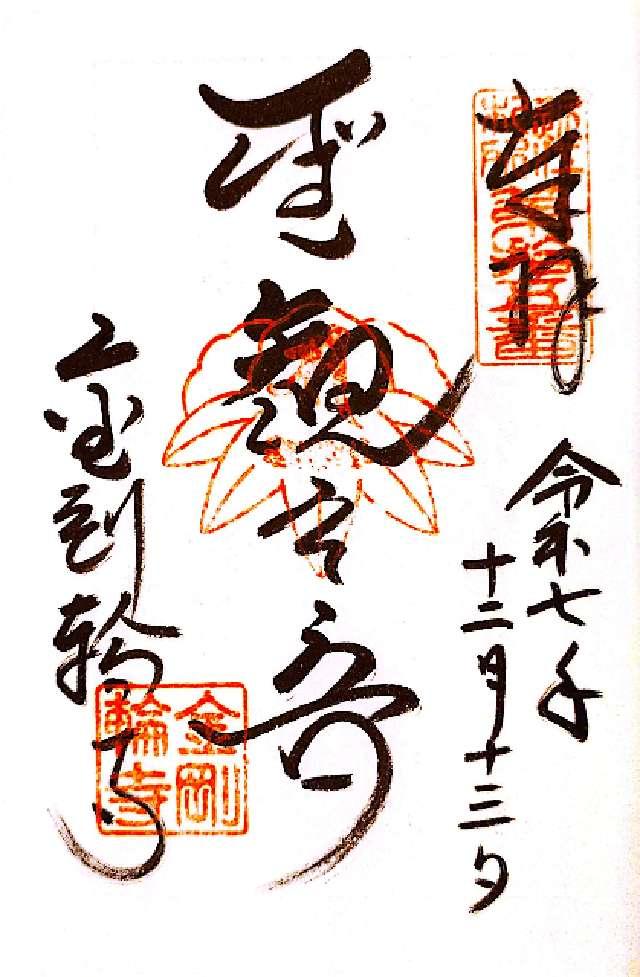 奉拝
令和七年
十二月十三日
聖観世音
金剛輪寺
金剛
輪寺